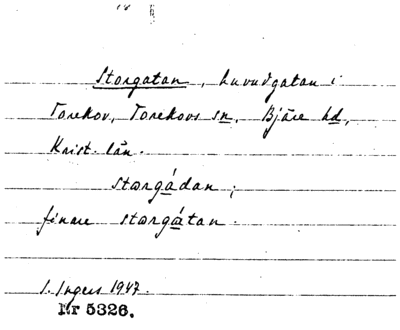 18
Storgatan, huvudgatan i
Torekov, Torekovs sn, Bjäre hd,
Krist. län.
stœrgádan;
finare stœrgátan.
I. Ingers 1947.
Nr 5326.